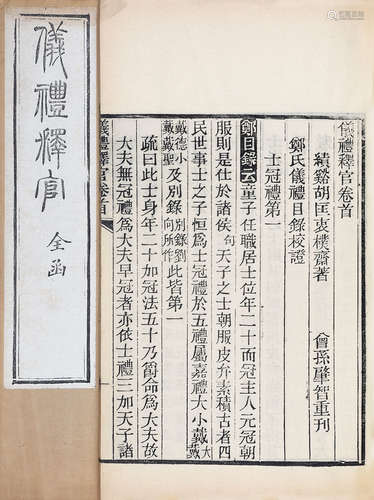 儀禮釋官
全函
儀禮釋官卷首
績谿胡匡衷樸齋著
曾孫肇智重刊
鄭氏儀禮目錄校證
士冠禮第一
鄭目錄云童子任職居士位年二十而冠主人元冠朝
服則是仕於諸侯句天子之士朝服皮弁素積古者四
民世事士之子恒爲士冠禮於五禮屬嘉禮大小戴大戴
戴德小戴戴聖及別錄別錄劉向所作此皆第一
疏曰此士身年二十加冠法五十乃爵命爲大夫故
大夫無冠禮爲大夫早冠者亦依士禮三加天子諸
儀禮釋官 卷首